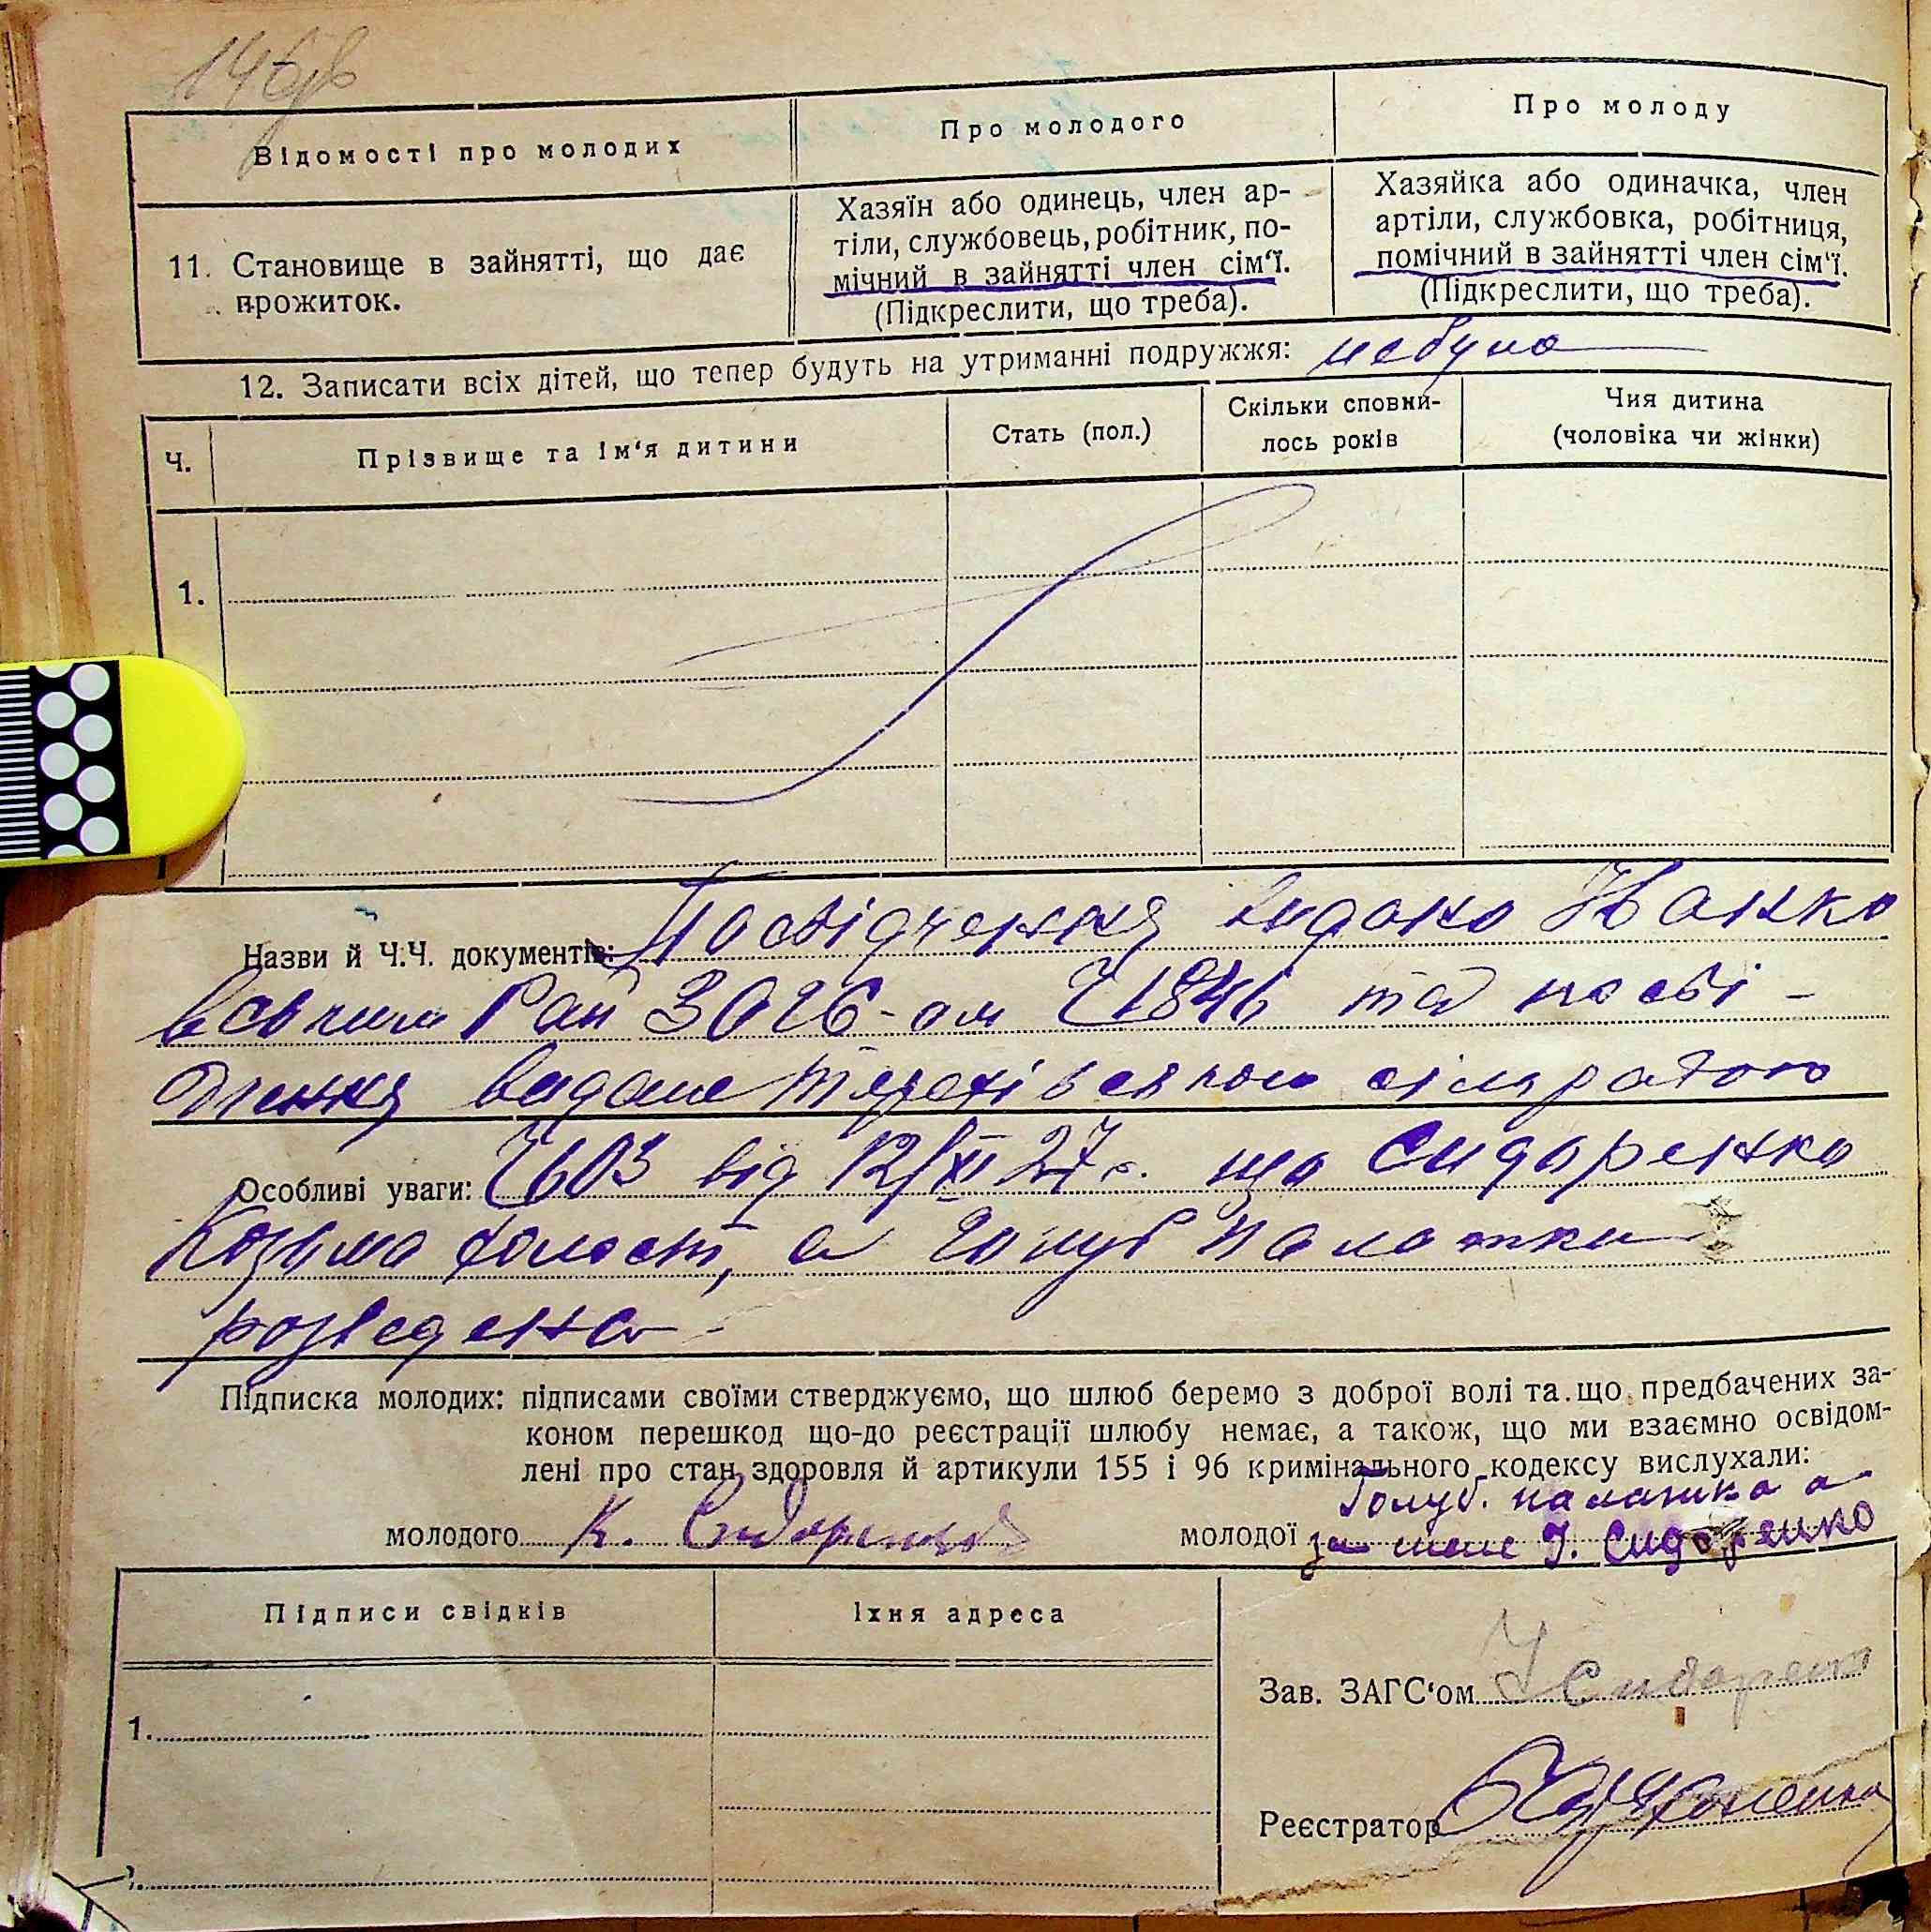 Відомості про молодих
Про молодого
Про молоду
11. Становище в зайнятті, що дає
прожиток.
Хазяїн або одинець, член ар-
тіли, службовець, робітник, по-
мічний в зайнятті член сім'ї.
(Підкреслити, що треба).
Хазяйка або одиначка, член
артіли, службовка, робітниця,
помічний в зайнятті член сім'ї.
(Підкреслити, що треба).
12. Записати всіх дітей, що тепер будуть на утриманні подружжя:
Ч.
Прізвище та ім'я дитини
Стать (пол.)
Скільки сповни-
лось років
Чия дитина
(чоловіка чи жінки)
1.
Назви й Ч.Ч. документів: Посвідчення видано Іванко
Рай ЗАГС-ом та посві-
дчення видане сільрадою
Особливі уваги: Ч 603 від 12/XI 27 р. що Сидоренко
Козьма холост, а Голуб Палажка
розведена
Підписка молодих: підписами своїми стверджуємо, що шлюб беремо з доброї волі та що предбачених за-
коном перешкод що-до реєстрації шлюбу немає, а також, що ми взаємно освідом-
лені про стан здоровля й артикули 155 і 96 кримінального кодексу вислухали:
молодого К. Сидоренко
молодої Голуб. палажка а
за мене І. Сидоренко
Підписи свідків
Їхня адреса
1.
Зав. ЗАГС'ом Сидоренко
Реєстратор